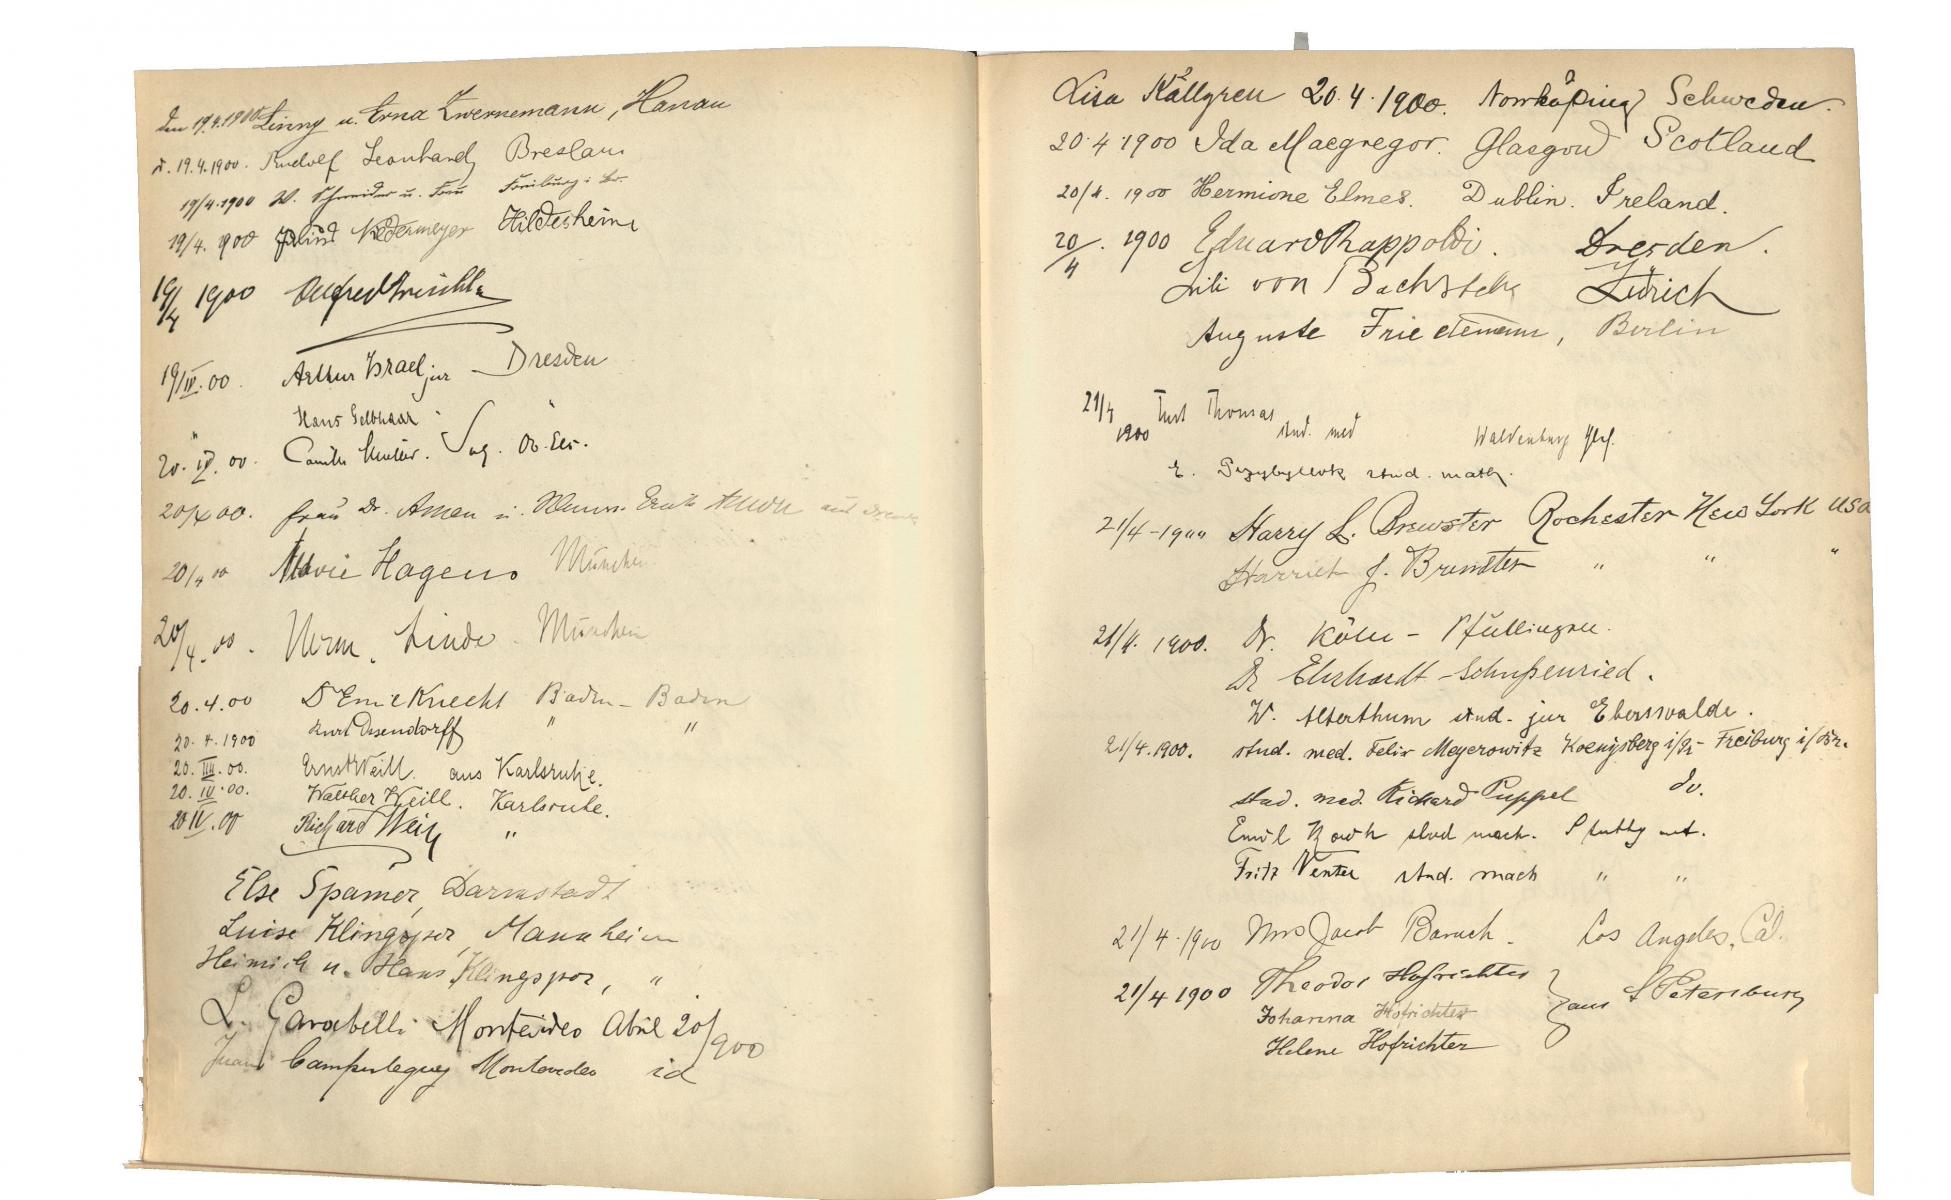 den 19.4.1900 Linny u. Erna Zwernemann, Hanau
d. 19.4.1900. Rudolf Leonhard, Breslau
19/4.1900 W. Schneider u. Frau Freiburg i. Br.
19/4. 900 Hildesheim
19/4 1900 Alfred
19/IV.00. Arthur Israel jur Dresden
Hans Gelbhaar "
20. IV. 00. Camille
20/4 00. Frau Dr. Amen u.
20/4 00 Marie Hagens München
20/4.00. Herm. Linde - München
20.4.00 Dr Emil Knecht Baden-Baden
20.4.1900 Kurt " "
20. III. 00. Ernst Weill. aus Karlsruhe.
20. IV. 00. Walther Weill. Karlsruhe.
20 IV. 00 Richard Weill "
Else Spamer, Darmstadt
Luise Klingspor, Mannheim
Heinrich u. Hans Klingspor, "
L. Garabelli Montevideo Abril 20/900
Juan Montevideo id
Lisa Källgren 20.4.1900. Norrköping Schweden.
20.4.1900 Ida Macgregor. Glasgow Scotland
20/4. 1900 Hermione Elmes. Dublin. Ireland.
20/4. 1900 Eduard Rappoldi. Dresden.
Lili von Zürich
Auguste Friedemann, Berlin
21/4 1900 Thomas stud. med Waldenburg
E. stud. math.
21/4-1900 Harry L. Brewster Rochester New York USA
Harriet J. Brewster " " "
21/4. 1900. Dr. Köln - Pfullingen.
Dr Ehrhardt - Schußenried.
W. Alterthum stud. jur Eberswalde.
21/4.1900. stud. med. Felix Meyerowitz Koenigsberg i/Pr - Freiburg i/Br.
stud. med. Richard Puppel do.
Emil stud mach. Stuttgart.
Fritz Venter stud. mach " "
21/4.1900 Mrs Jacob Baruch. Los Angeles, Cal.
21/4 1900 Theodor Hofrichter
Johanna Hofrichter aus St Petersburg
Helene Hofrichter